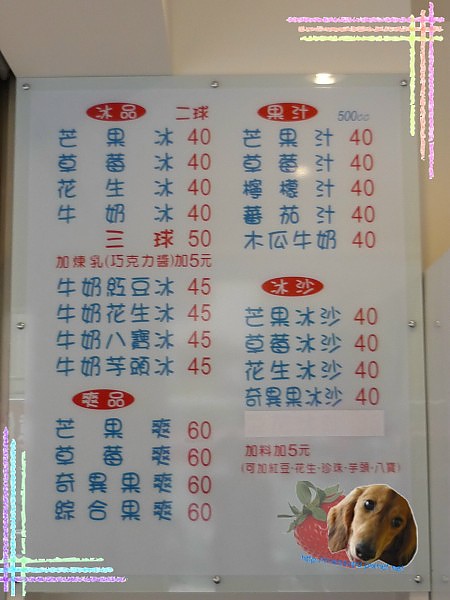 冰品 二球
芒果冰 40
草莓冰 40
花生冰 40
牛奶冰 40
三球 50
加煉乳(巧克力醬)加5元
牛奶紅豆冰 45
牛奶花生冰 45
牛奶八寶冰 45
牛奶芋頭冰 45
爽品
芒果爽 60
草莓爽 60
奇異果爽 60
綜合果爽 60
果汁 500cc
芒果汁 40
草莓汁 40
檸檬汁 40
蕃茄汁 40
木瓜牛奶 40
冰沙
芒果冰沙 40
草莓冰沙 40
花生冰沙 40
奇異果冰沙 40
加料加5元
(可加紅豆·花生·珍珠·芋頭·八寶)